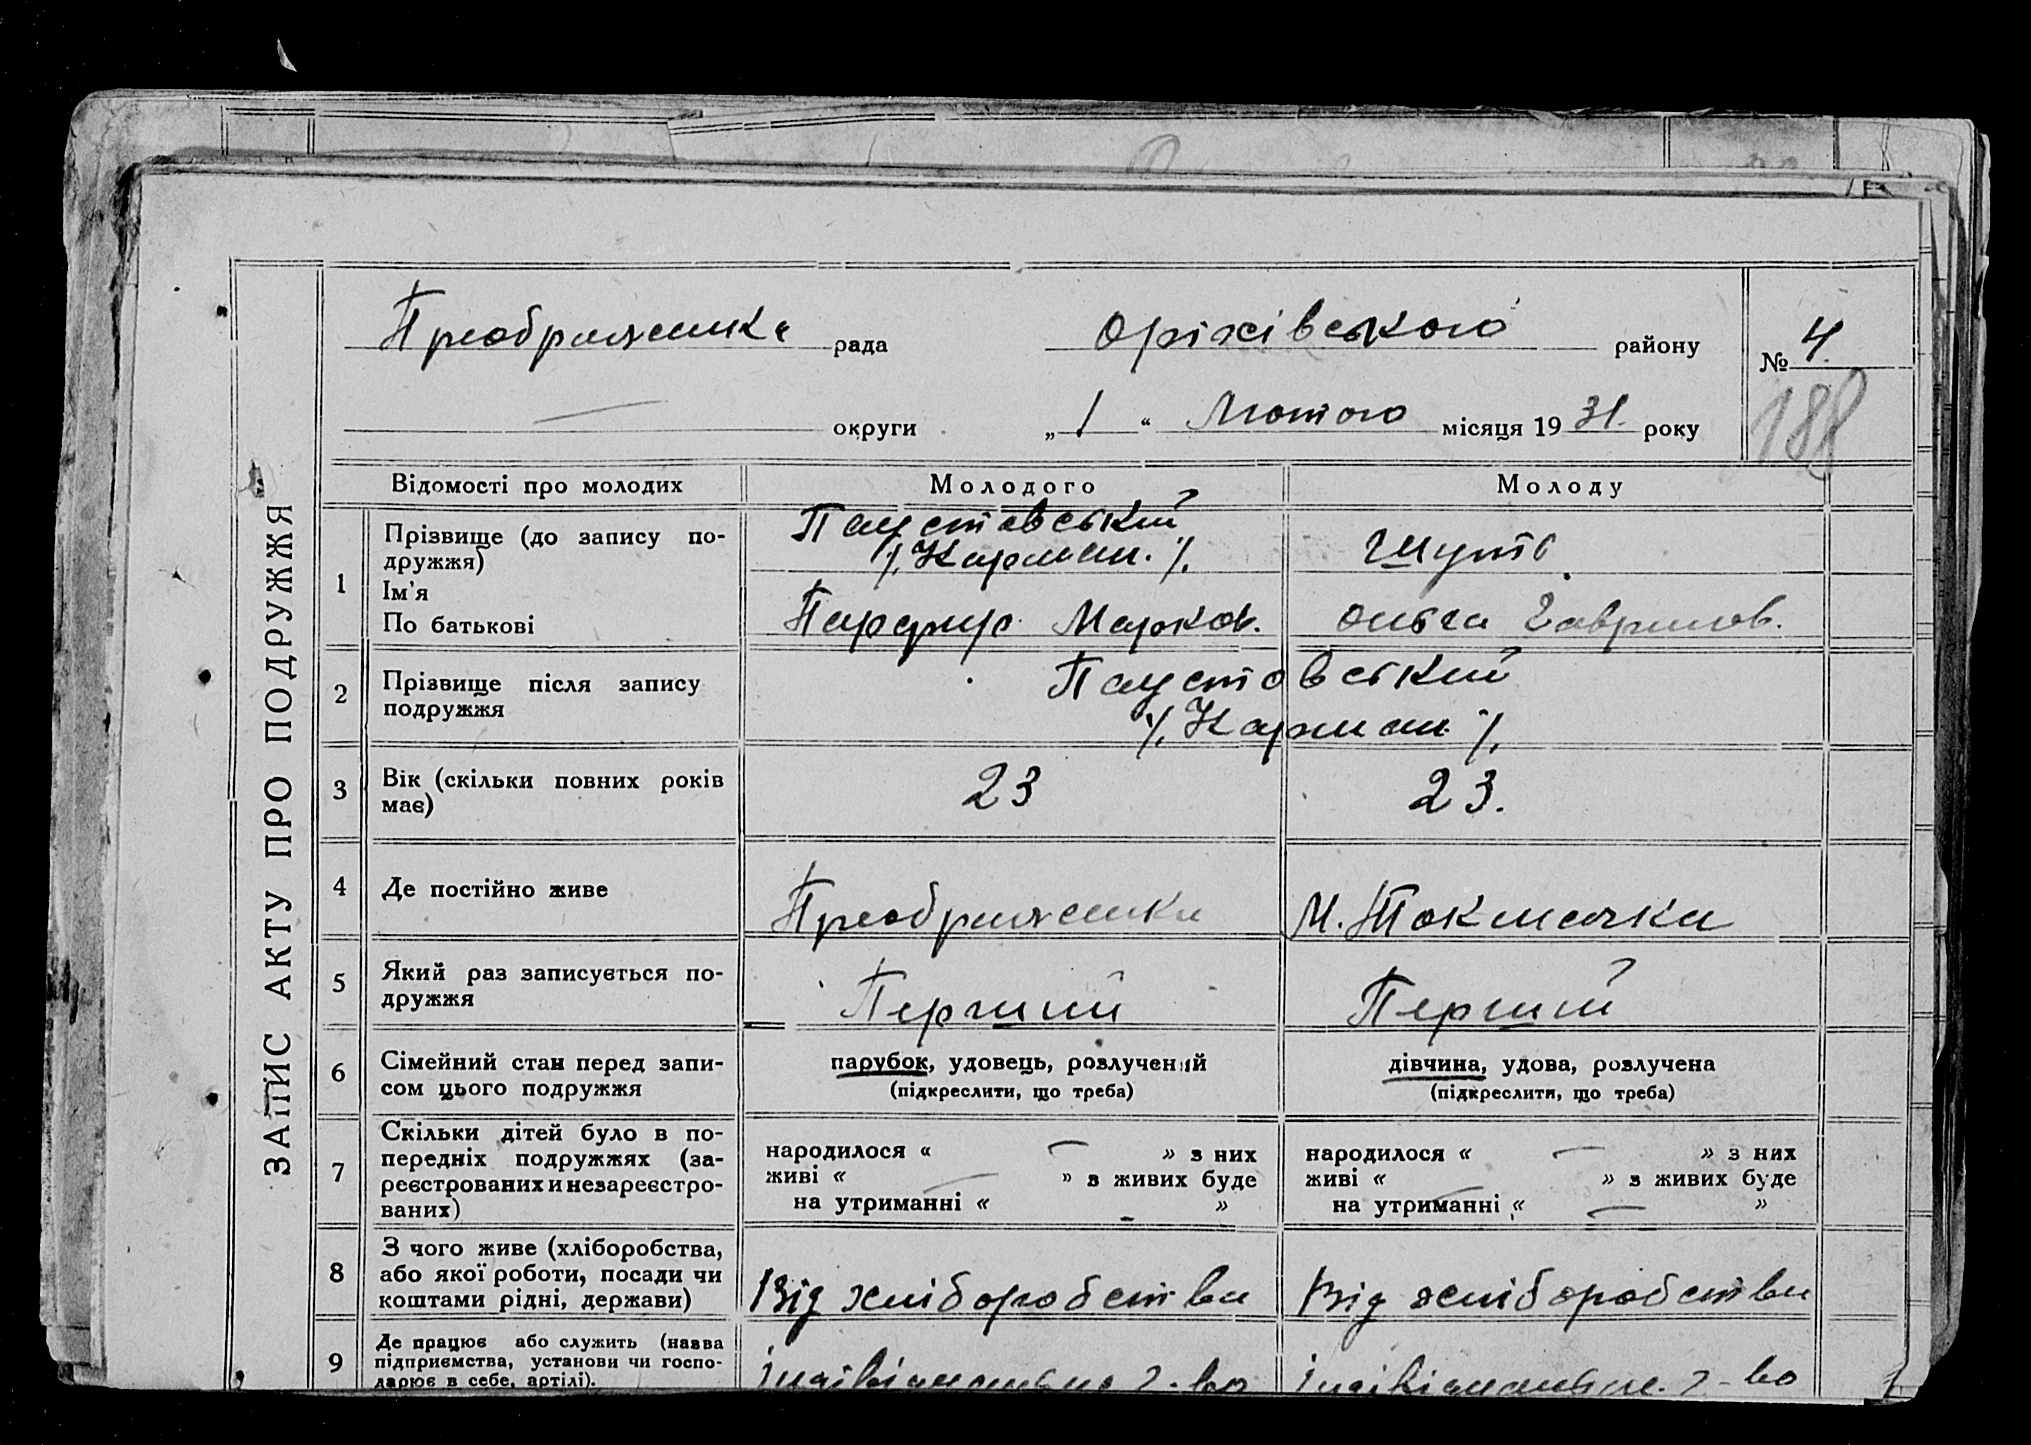 ЗАПИС АКТУ ПРО ПОДРУЖЖЯ
Преображенка рада Оріхівського району
№ 4
188
округи „ 1 “ Лютого місяця 19 31. року
Відомості про молодих Молодого Молоду
1 Прізвище (до запису по-
дружжя)
Ім'я
По батькові
Паустовський
/. Карман. /.
Шуть
Марков.
Ольга Гаврилов.
2 Прізвище після запису
подружжя
Паустовський
/. Карман /.
3 Вік (скільки повних років
має)
23 23.
4 Де постійно живе Преображенка М. Токмачка
5 Який раз записується по-
дружжя
Перший Перший
6 Сімейний стан перед запи-
сом цього подружжя
парубок, удовець, розлучений
(підкреслити, що треба)
дівчина, удова, розлучена
(підкреслити, що треба)
7 Скільки дітей було в по-
передніх подружжях (за-
реєстрованих и незареєстро-
ваних)
народилося « — » з них
живі « — » з живих буде
на утриманні « – »
народилося « — » з них
живі « — » з живих буде
на утриманні « — »
8 З чого живе (хліборобства,
або якої роботи, посади чи
коштами рідні, держави)
Від хліборобства Від хліборобства
9 Де працює або служить (назва
підприємства, установи чи госпо-
дарює в себе, артілі).